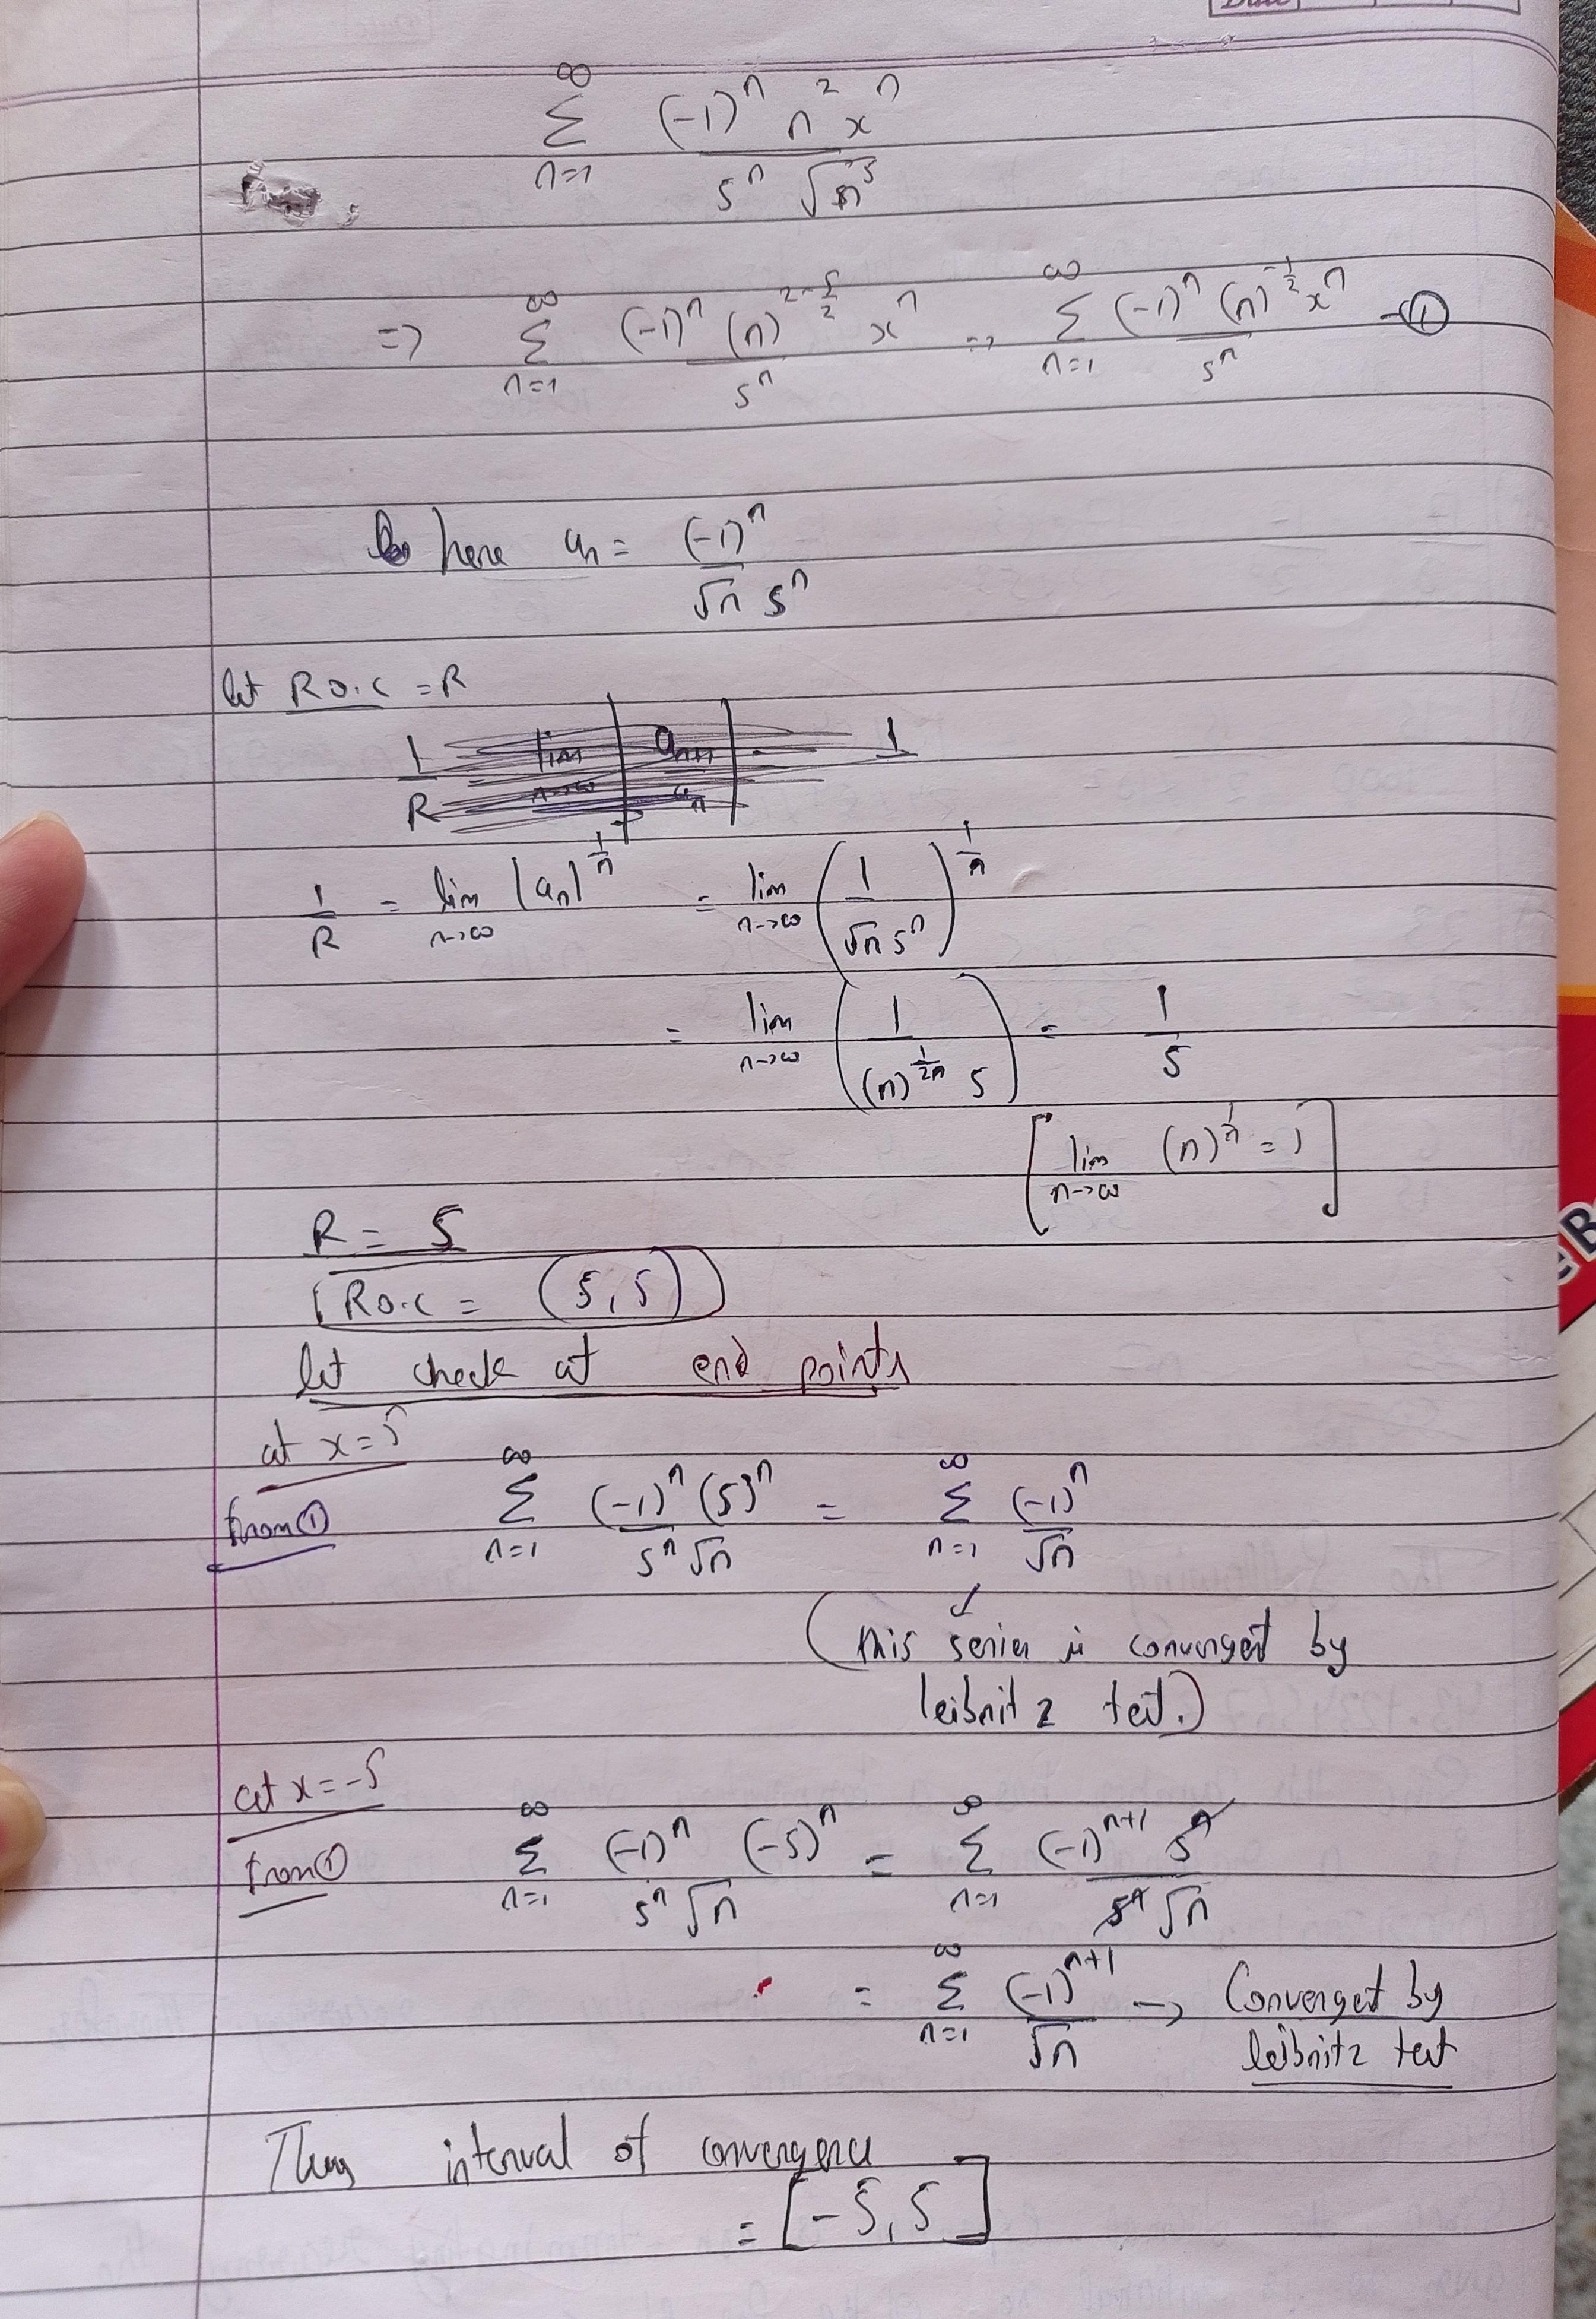 Date
∞
Σ (-1)^n n^2 x^n / 5^n √n^5
n=1
=> Σ_{n=1}^∞ (-1)^n (n)^{2-5/2} x^n / 5^n => Σ_{n=1}^∞ (-1)^n (n)^{-1/2} x^n / 5^n —①
here a_n = (-1)^n / √n 5^n
let R.O.C = R
1/R = lim_{n→∞} |a_{n+1}/a_n| = 1
1/R = lim_{n→∞} |a_n|^{1/n} = lim_{n→∞} (1 / √n 5^n)^{1/n}
= lim_{n→∞} (1 / (n)^{1/2n} 5) = 1/5
[lim_{n→∞} (n)^{1/n} = 1]
R = 5
R.O.C = (5, 5)
let check at end points
at x=5
from ① Σ_{n=1}^∞ (-1)^n (5)^n / 5^n √n = Σ_{n=1}^∞ (-1)^n / √n
(this series is converget by
leibnitz test.)
at x=-5
from ① Σ_{n=1}^∞ (-1)^n (-5)^n / 5^n √n = Σ_{n=1}^∞ (-1)^{n+1} 5^n / 5^n √n
= Σ_{n=1}^∞ (-1)^{n+1} / √n → Converget by
leibnitz test
Thus interval of convergence
= [-5, 5]